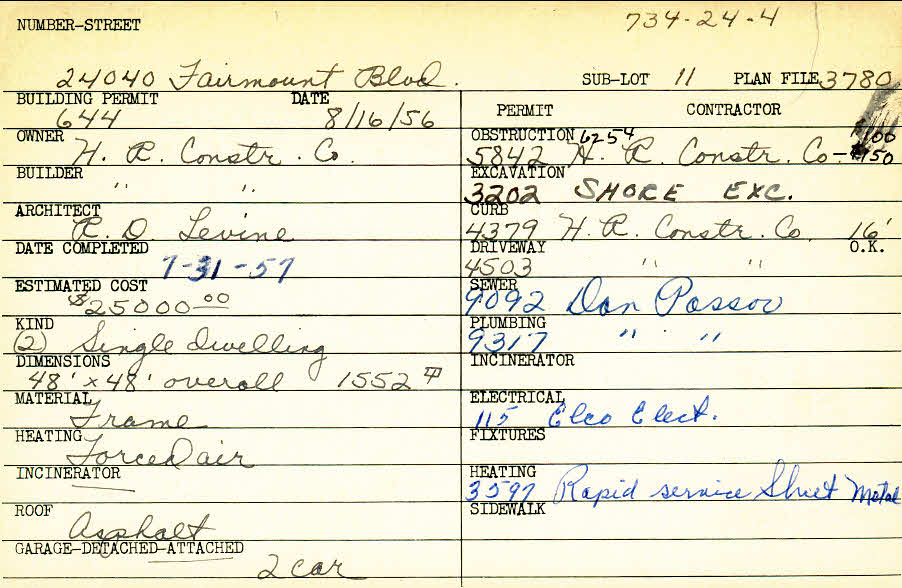 734-24-4
NUMBER-STREET
24040 Fairmount Blvd. SUB-LOT 11 PLAN FILE 3780
BUILDING PERMIT DATE
644 8/16/56
OWNER
H. R. Constr. Co.
BUILDER
" "
ARCHITECT
R. D. Levine
DATE COMPLETED
7-31-57
ESTIMATED COST
$25000.00
KIND
(2) Single dwelling
DIMENSIONS
48' x 48' overall 1552
MATERIAL
Frame
HEATING
Forced air
INCINERATOR
ROOF
Asphalt
GARAGE-DETACHED-ATTACHED
2 car
PERMIT CONTRACTOR
OBSTRUCTION 6254
5842 H. R. Constr. Co
EXCAVATION
3202 SHORE EXC.
CURB
4379 H. R. Constr. Co. 16'
DRIVEWAY O.K.
4503 " "
SEWER
9092 Dan Possov
PLUMBING
9317 " "
INCINERATOR
ELECTRICAL
115 Elco Elect.
FIXTURES
HEATING
3597 Rapid service Sheet Metal
SIDEWALK